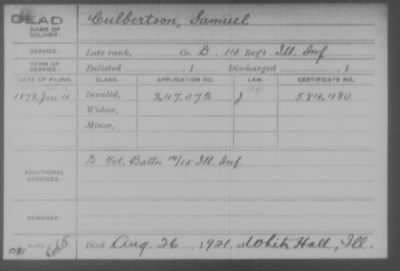 DEAD
NAME OF SOLDIER: Culbertson, Samuel
SERVICE: Late rank, Co. D, 14 Reg't Ill. Inf
TERM OF SERVICE: Enlisted , 1 Discharged , 1
DATE OF FILING. CLASS. APPLICATION NO. LAW. CERTIFICATE NO.
1878, Jan. Invalid, 247.072 J 584.480
Widow,
Minor,
ADDITIONAL SERVICES: D Vet. Battn 14/15 Ill. Inf.
REMARKS:
Died Aug. 26, 1921, at White Hall, Ill.